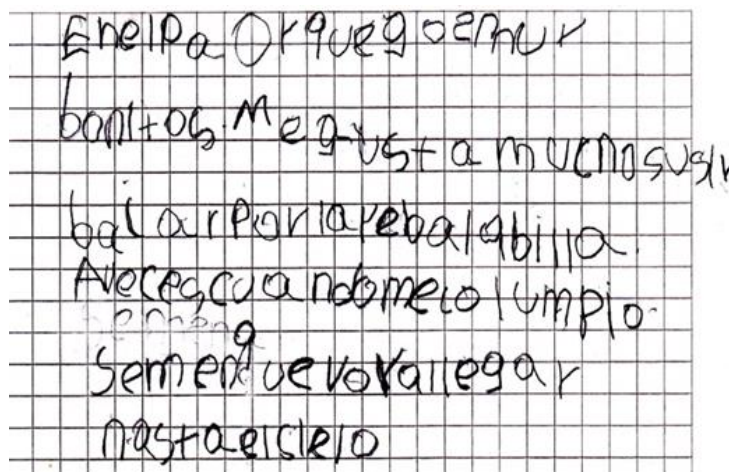 En el pa Or que g oemur
bonitos. Me gusta mucho susir
balar por la rebalabilla.
Aveces cuando me columpio
Semen que vova llegar
hasta el sielo